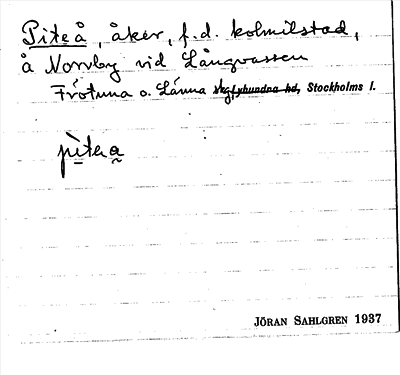 Piteå, åker, f.d. kolmilstad,
å Norrby vid Långvassen
Frötuna o. Länna skg, Lyhundra hd, Stockholms l.
pìtea
JÖRAN SAHLGREN 1937